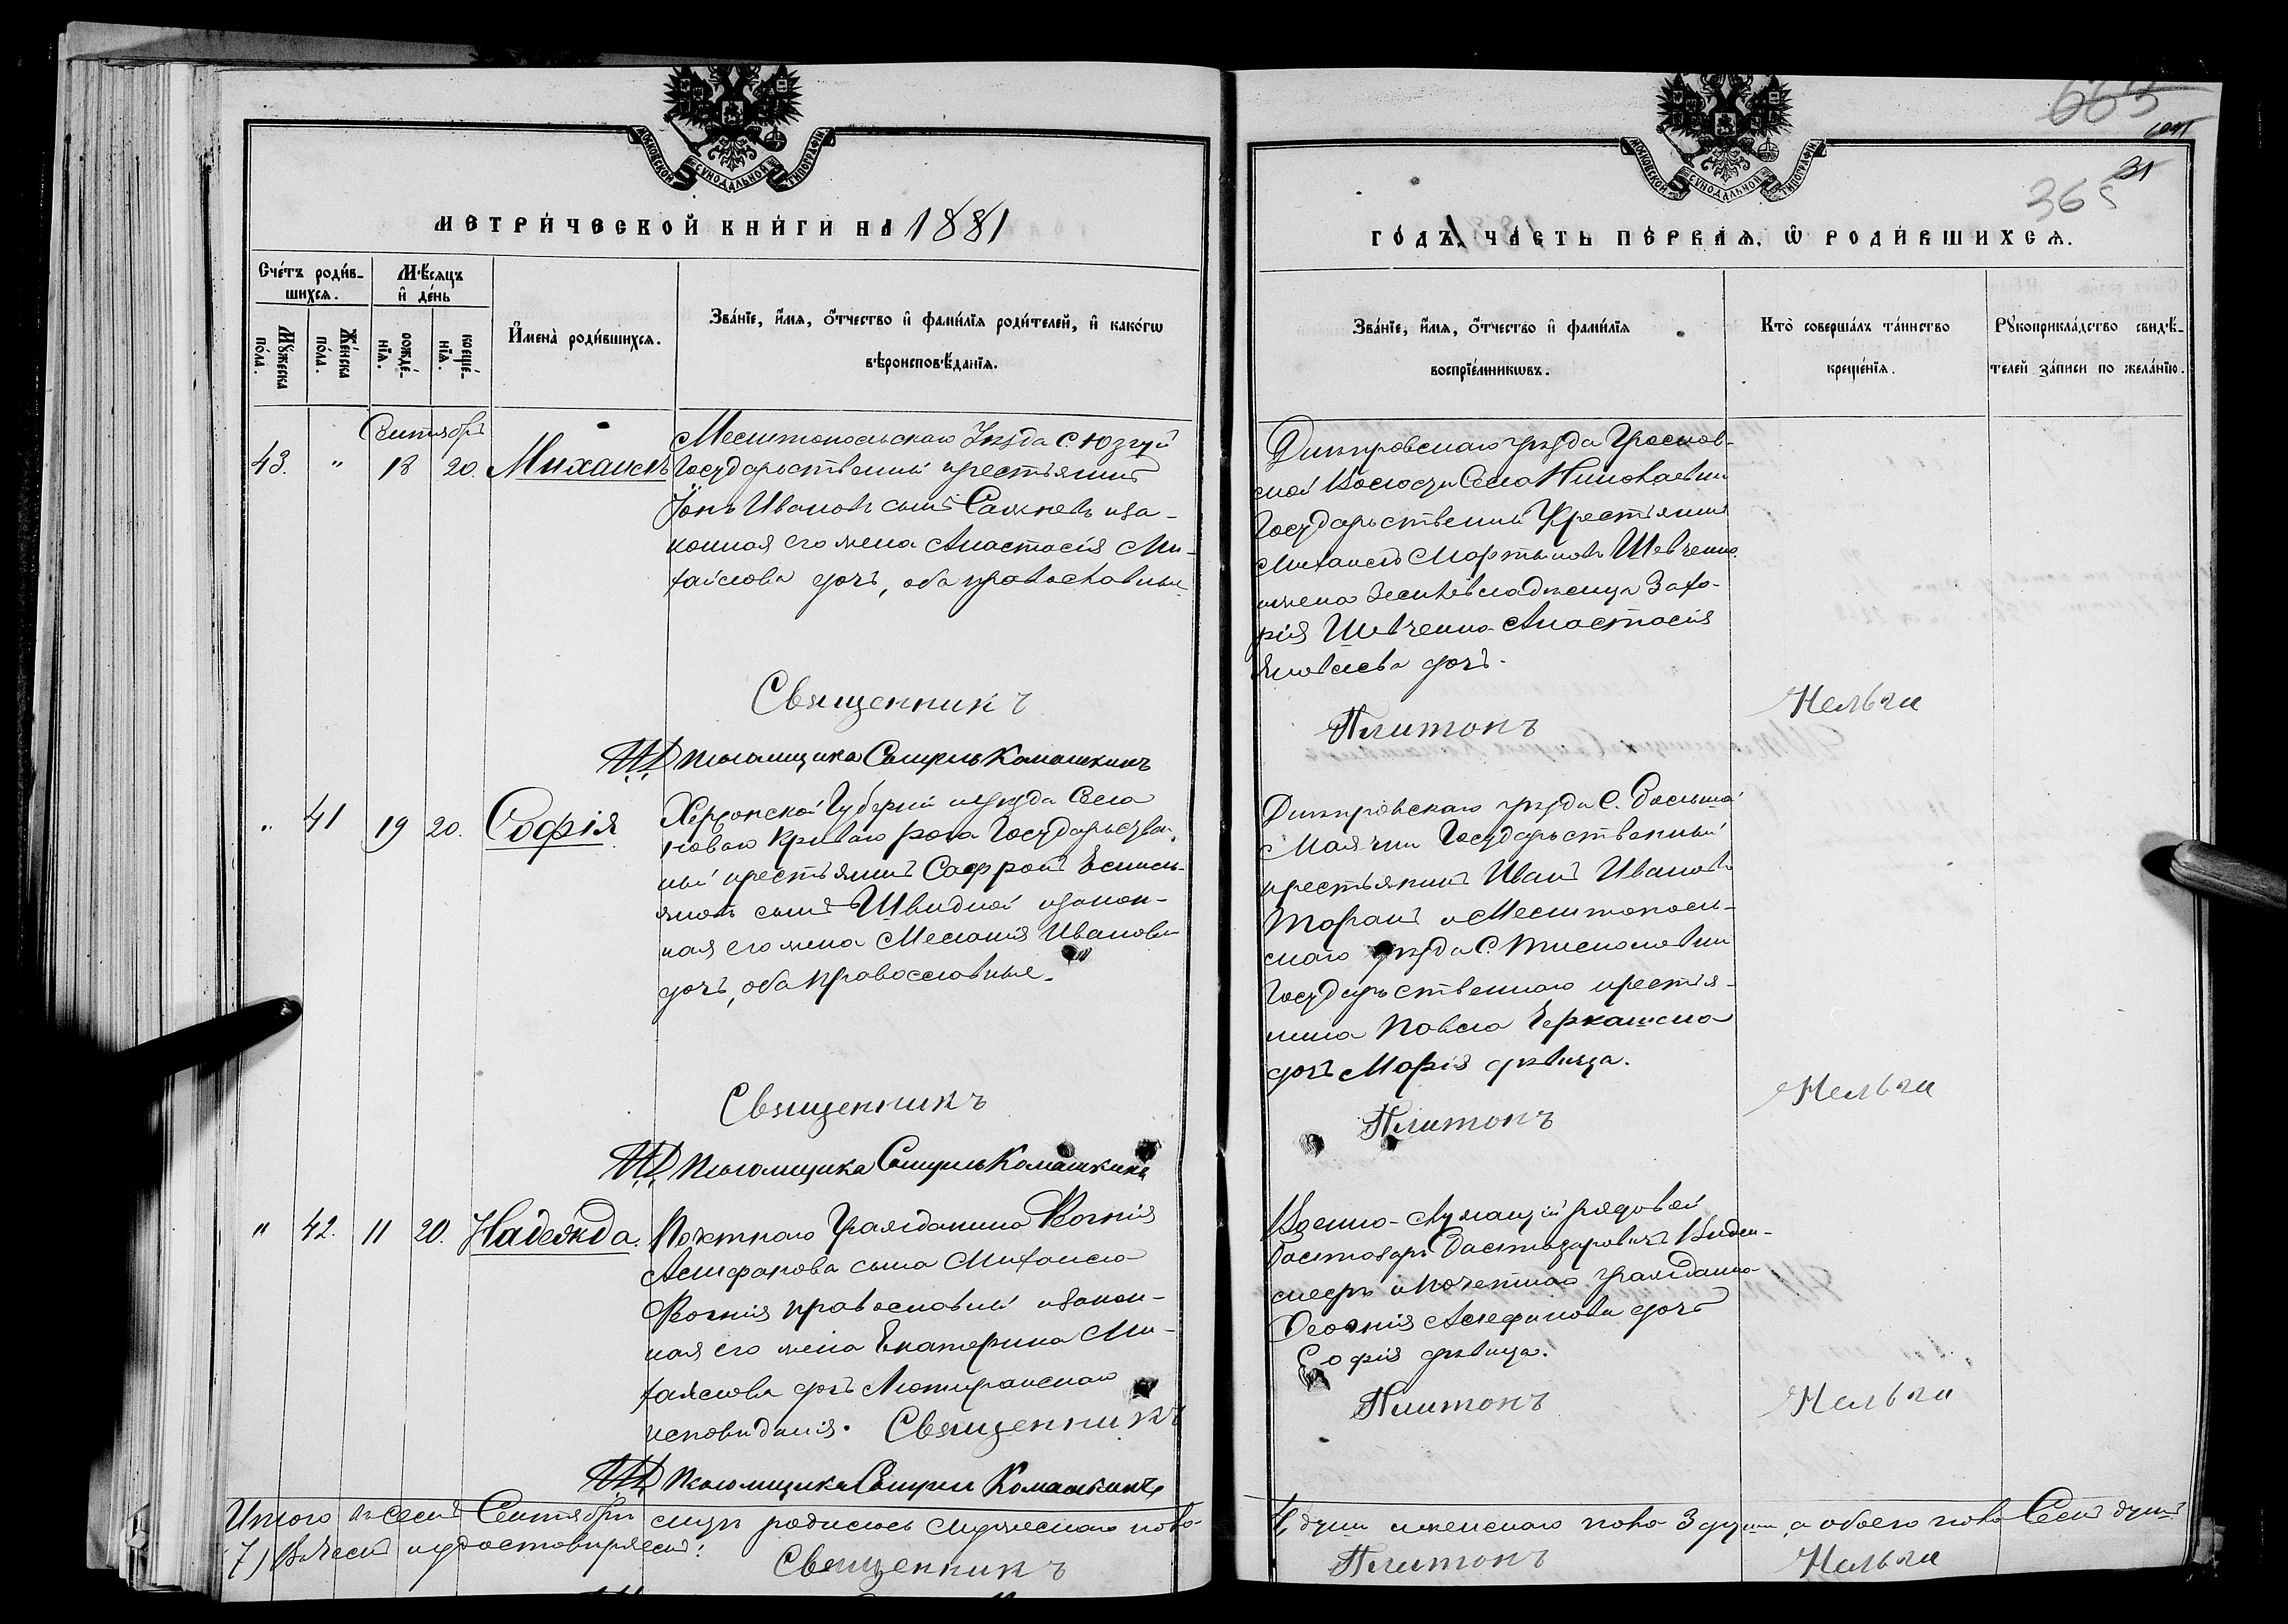 МОСКОВСКОЙ СУНОДАЛЬНОЙ ТИПОГРАФІИ
МЕТРИ́ЧЕСКОЙ КНИ́ГИ НА 1881
Сче́тъ роди́в-
шихся.
М́ѣсяцъ
и҆ де́нь
Му́жеска
по́ла.
Же́нска
по́ла.
рожде́-
нїѧ.
креще́-
нїѧ.
И҆мена̀ роди́вшихся.
Зва́нїе, и҆́мѧ, ѻ҆́тчество и҆ фами́лїѧ роди́телей, и҆ како́гѡ
вѣроисповѣ́данїѧ.
Сентябрь
43. " 18 20. Михаилъ
Мелитопольскаго Уѣзда С. Юзкуй
Государственный крестьянинъ
Іонъ Ивановъ сынъ и за-
конная его жена Анастасія Ми-
хайлова дочь, оба православные
Священникъ
И. Д. Псаломщика Самуилъ Комашкинъ
" 41 19 20. Софія
Херсонской Губерніи и уѣзда Села
Новаго Криваго рога Государствен-
ный крестьянинъ Сафронъ Емиль-
яновъ сынъ Швидкой и закон-
ная его жена Меланія Иванова
дочь, оба православные.
Священникъ
И. Д. Псаломщика Самуилъ Комашкинъ
" 42. 11 20. Надежда.
Почетнаго Гражданина
сына Михаила
православный и закон-
ная его жена Екатерина Ми-
хайлова дочь Лютеранскаго
исповѣданія. Священникъ
И. Д. Псаломщика Самуилъ Комашкинъ
Итого въ семъ Сентябрѣ мѣсяцѣ родилось мужескаго пола
7) въ чемъ и удостовѣряемъ:
Священникъ
665
365
21
МОСКОВСКОЙ СУНОДАЛЬНОЙ ТИПОГРАФІИ
ГО́ДЪ, ЧА́СТЬ ПЕ́РВАЯ, Ѡ҆ РОДИ́ВШИХСЯ.
Зва́нїе, и҆́мѧ, ѻ҆́тчество и҆ фами́лїѧ
воспрїе́мникѡвъ.
Кто̀ соверша́лъ та́инство
креще́нїѧ.
Рꙋкоприкла́дство свидѣ́-
телей за́писи по жела́нїю.
Днепровскаго уѣзда
ской Волости Села Николаевки
Государственный Крестьянинъ
Михаилъ Мартыновъ Шевченко
и жена Землевладельца Заха-
рія Шевченко Анастасія
Яковлева дочь.
Платонъ
Нельга
Днепровскаго уѣзда С. Большой
Маячки Государственный
крестьянинъ Иванъ Ивановъ
Таранъ и Мелитополь-
скаго уѣзда С.
Государственнаго крестья-
нина Павла Черкашина
дочь Марія дѣвица.
Платонъ
Нельга
Военно-служащій рядовой
и почетнаго гражданина
дочь
Софія дѣвица.
Платонъ
Нельга
4 души женскаго пола 3 души, а обоего пола Семь душъ
Платонъ
Нельга